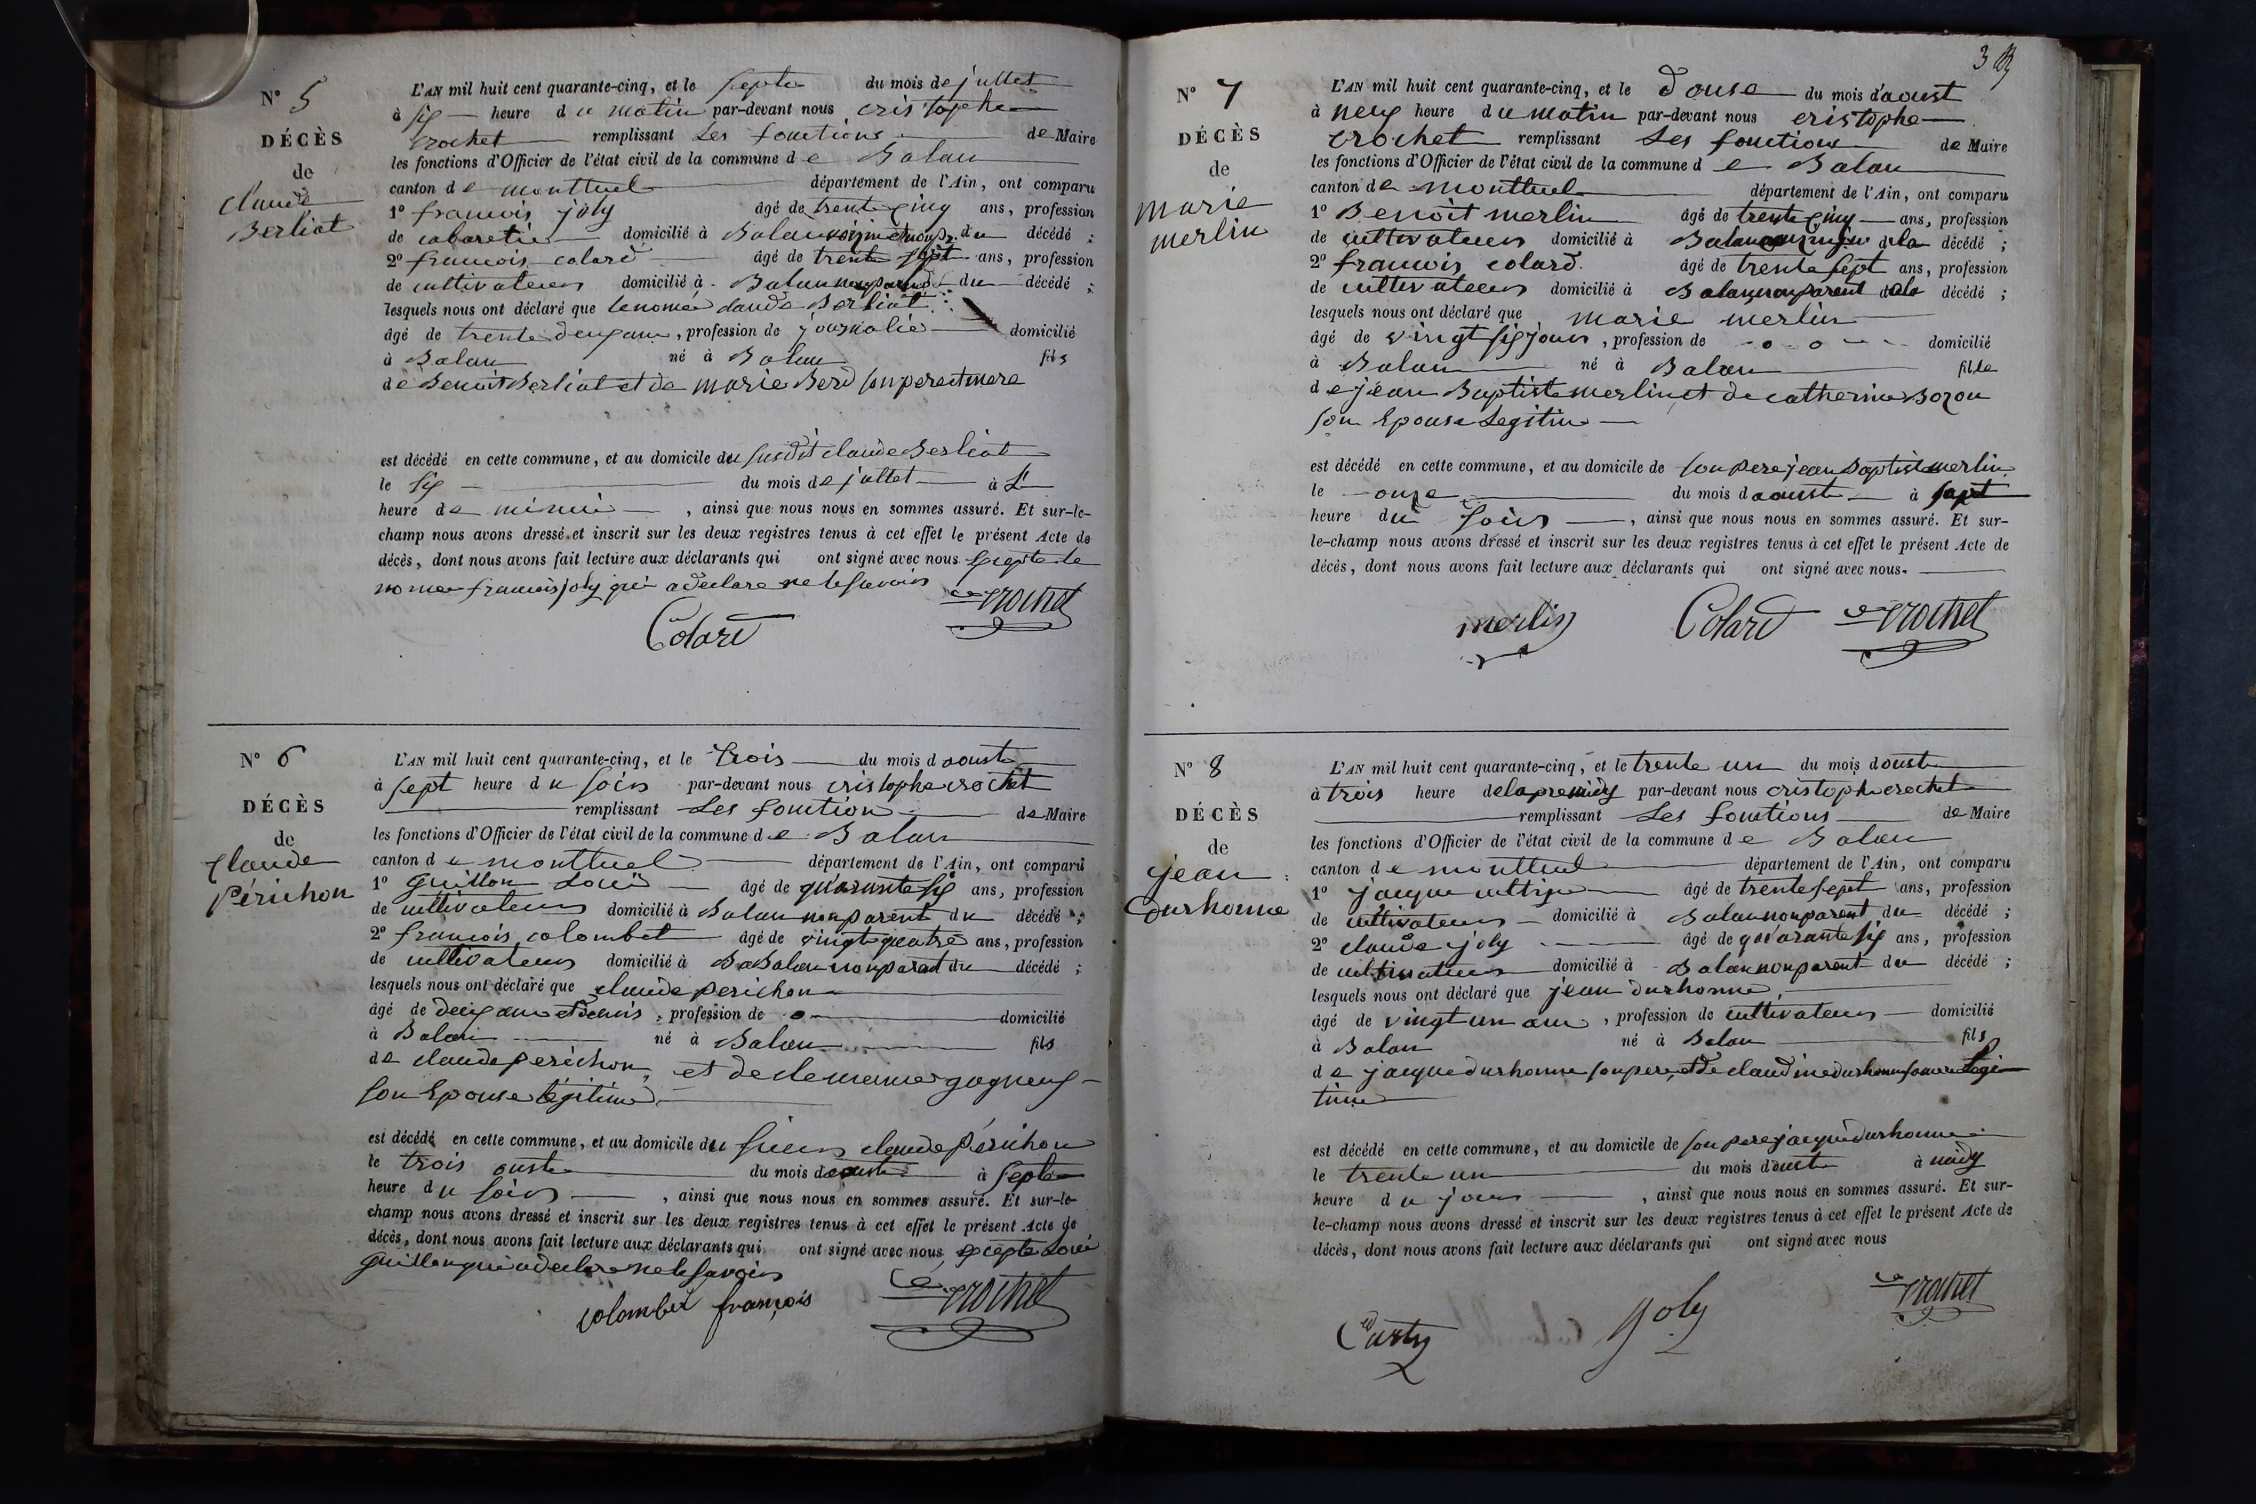 N° 5
DÉCÈS
de
claude
Berliat
L'AN mil huit cent quarante-cinq, et le septe du mois de jullet
à six heure du matin par-devant nous cristophe
crochet remplissant Les fonctions de Maire
les fonctions d'Officier de l'état civil de la commune de Balan
canton de montluel département de l'Ain, ont comparu
1° francois joly âgé de trente cinq ans, profession
de cabaretier domicilié à Balan du décédé ;
2° francois colard âgé de trente sept ans, profession
de cultivateur domicilié à Balan non parend du décédé ;
lesquels nous ont déclaré que lenomé claude Berliat
âgé de trente deux ans, profession de journalié domicilié
à Balan né à Balan fils
de Benoit Berliat et de marie Berd son pere et mere
est décédé en cette commune, et au domicile du susdit claude Berliat
le six du mois de jullet à
heure de minui, ainsi que nous nous en sommes assuré. Et sur-le-
champ nous avons dressé et inscrit sur les deux registres tenus à cet effet le présent Acte de
décès, dont nous avons fait lecture aux déclarants qui ont signé avec nous excepte le
nomer francois joly qui a declare ne le savoir
Colard crochet
N° 6
DÉCÈS
de
claude
Périchon
L'AN mil huit cent quarante-cinq, et le trois du mois d aouste
à sept heure du soir par-devant nous cristophe crochet
remplissant Les fonction de Maire
les fonctions d'Officier de l'état civil de la commune de Balan
canton de montluel département de l'Ain, ont comparu
1° Guillon Loui âgé de quarante six ans, profession
de cultivateur domicilié à Balan non parent du décédé ;
2° francois colombet âgé de vingt quatre ans, profession
de cultivateur domicilié à Ba Balan non parent du décédé ;
lesquels nous ont déclaré que claude perichon
âgé de deux ans et demis, profession de domicilié
à Balan né à Balan fils
de claude perichon, et de clemence gagneux
son Epouse légitime
est décédé en cette commune, et au domicile du sieur claude Périchon
le trois ouste du mois d aouste à septe
heure du soir, ainsi que nous nous en sommes assuré. Et sur-le-
champ nous avons dressé et inscrit sur les deux registres tenus à cet effet le présent Acte de
décès, dont nous avons fait lecture aux déclarants qui ont signé avec nous excepte Loui
Guillon qui a declare ne le savoir
colombet françois crochet
3
N° 7
DÉCÈS
de
marie
merlin
L'AN mil huit cent quarante-cinq, et le douse du mois d'aoust
à neuf heure du matin par-devant nous cristophe
crochet remplissant Les fonctions de Maire
les fonctions d'Officier de l'état civil de la commune de Balan
canton de montluel département de l'Ain, ont comparu
1° Benoit merlin âgé de trente cinq ans, profession
de cultivateur domicilié à Balan dela décédé ;
2° francois colard. âgé de trente sept ans, profession
de cultivateur domicilié à Balan non parent dela décédé ;
lesquels nous ont déclaré que marie merlin
âgé de vingt six jours, profession de domicilié
à Balan né à Balan fille
de jean Baptiste merlin et de catherine Bozon
son Epouse Legitime
est décédé en cette commune, et au domicile de son pere jean Baptiste merlin
le onze du mois d aouste à sept
heure du soir, ainsi que nous nous en sommes assuré. Et sur-
le-champ nous avons dressé et inscrit sur les deux registres tenus à cet effet le présent Acte de
décès, dont nous avons fait lecture aux déclarants qui ont signé avec nous.
merlin Colard crochet
N° 8
DÉCÈS
de
jean
Durhonne
L'AN mil huit cent quarante-cinq, et le trente un du mois d ouste
à trois heure de lapremidy par-devant nous cristophe crochet
remplissant Les fonctions de Maire
les fonctions d'Officier de l'état civil de la commune de Balan
canton de montluel département de l'Ain, ont comparu
1° jacque âgé de trente sept ans, profession
de cultivateur domicilié à Balan non parent du décédé ;
2° claude joly âgé de quarante six ans, profession
de cultivateur domicilié à Balan non parent du décédé ;
lesquels nous ont déclaré que jean durhonne,
âgé de vingt un ans, profession de cultivateur domicilié
à Balan né à Balan fils
de jacque durhonne son pere, et de claudine durhonne sa mere Legi
time
est décédé en cette commune, et au domicile de son pere jacque durhonne
le trente un du mois d'ouste à midy
heure du jour, ainsi que nous nous en sommes assuré. Et sur-
le-champ nous avons dressé et inscrit sur les deux registres tenus à cet effet le présent Acte de
décès, dont nous avons fait lecture aux déclarants qui ont signé avec nous
joly crochet